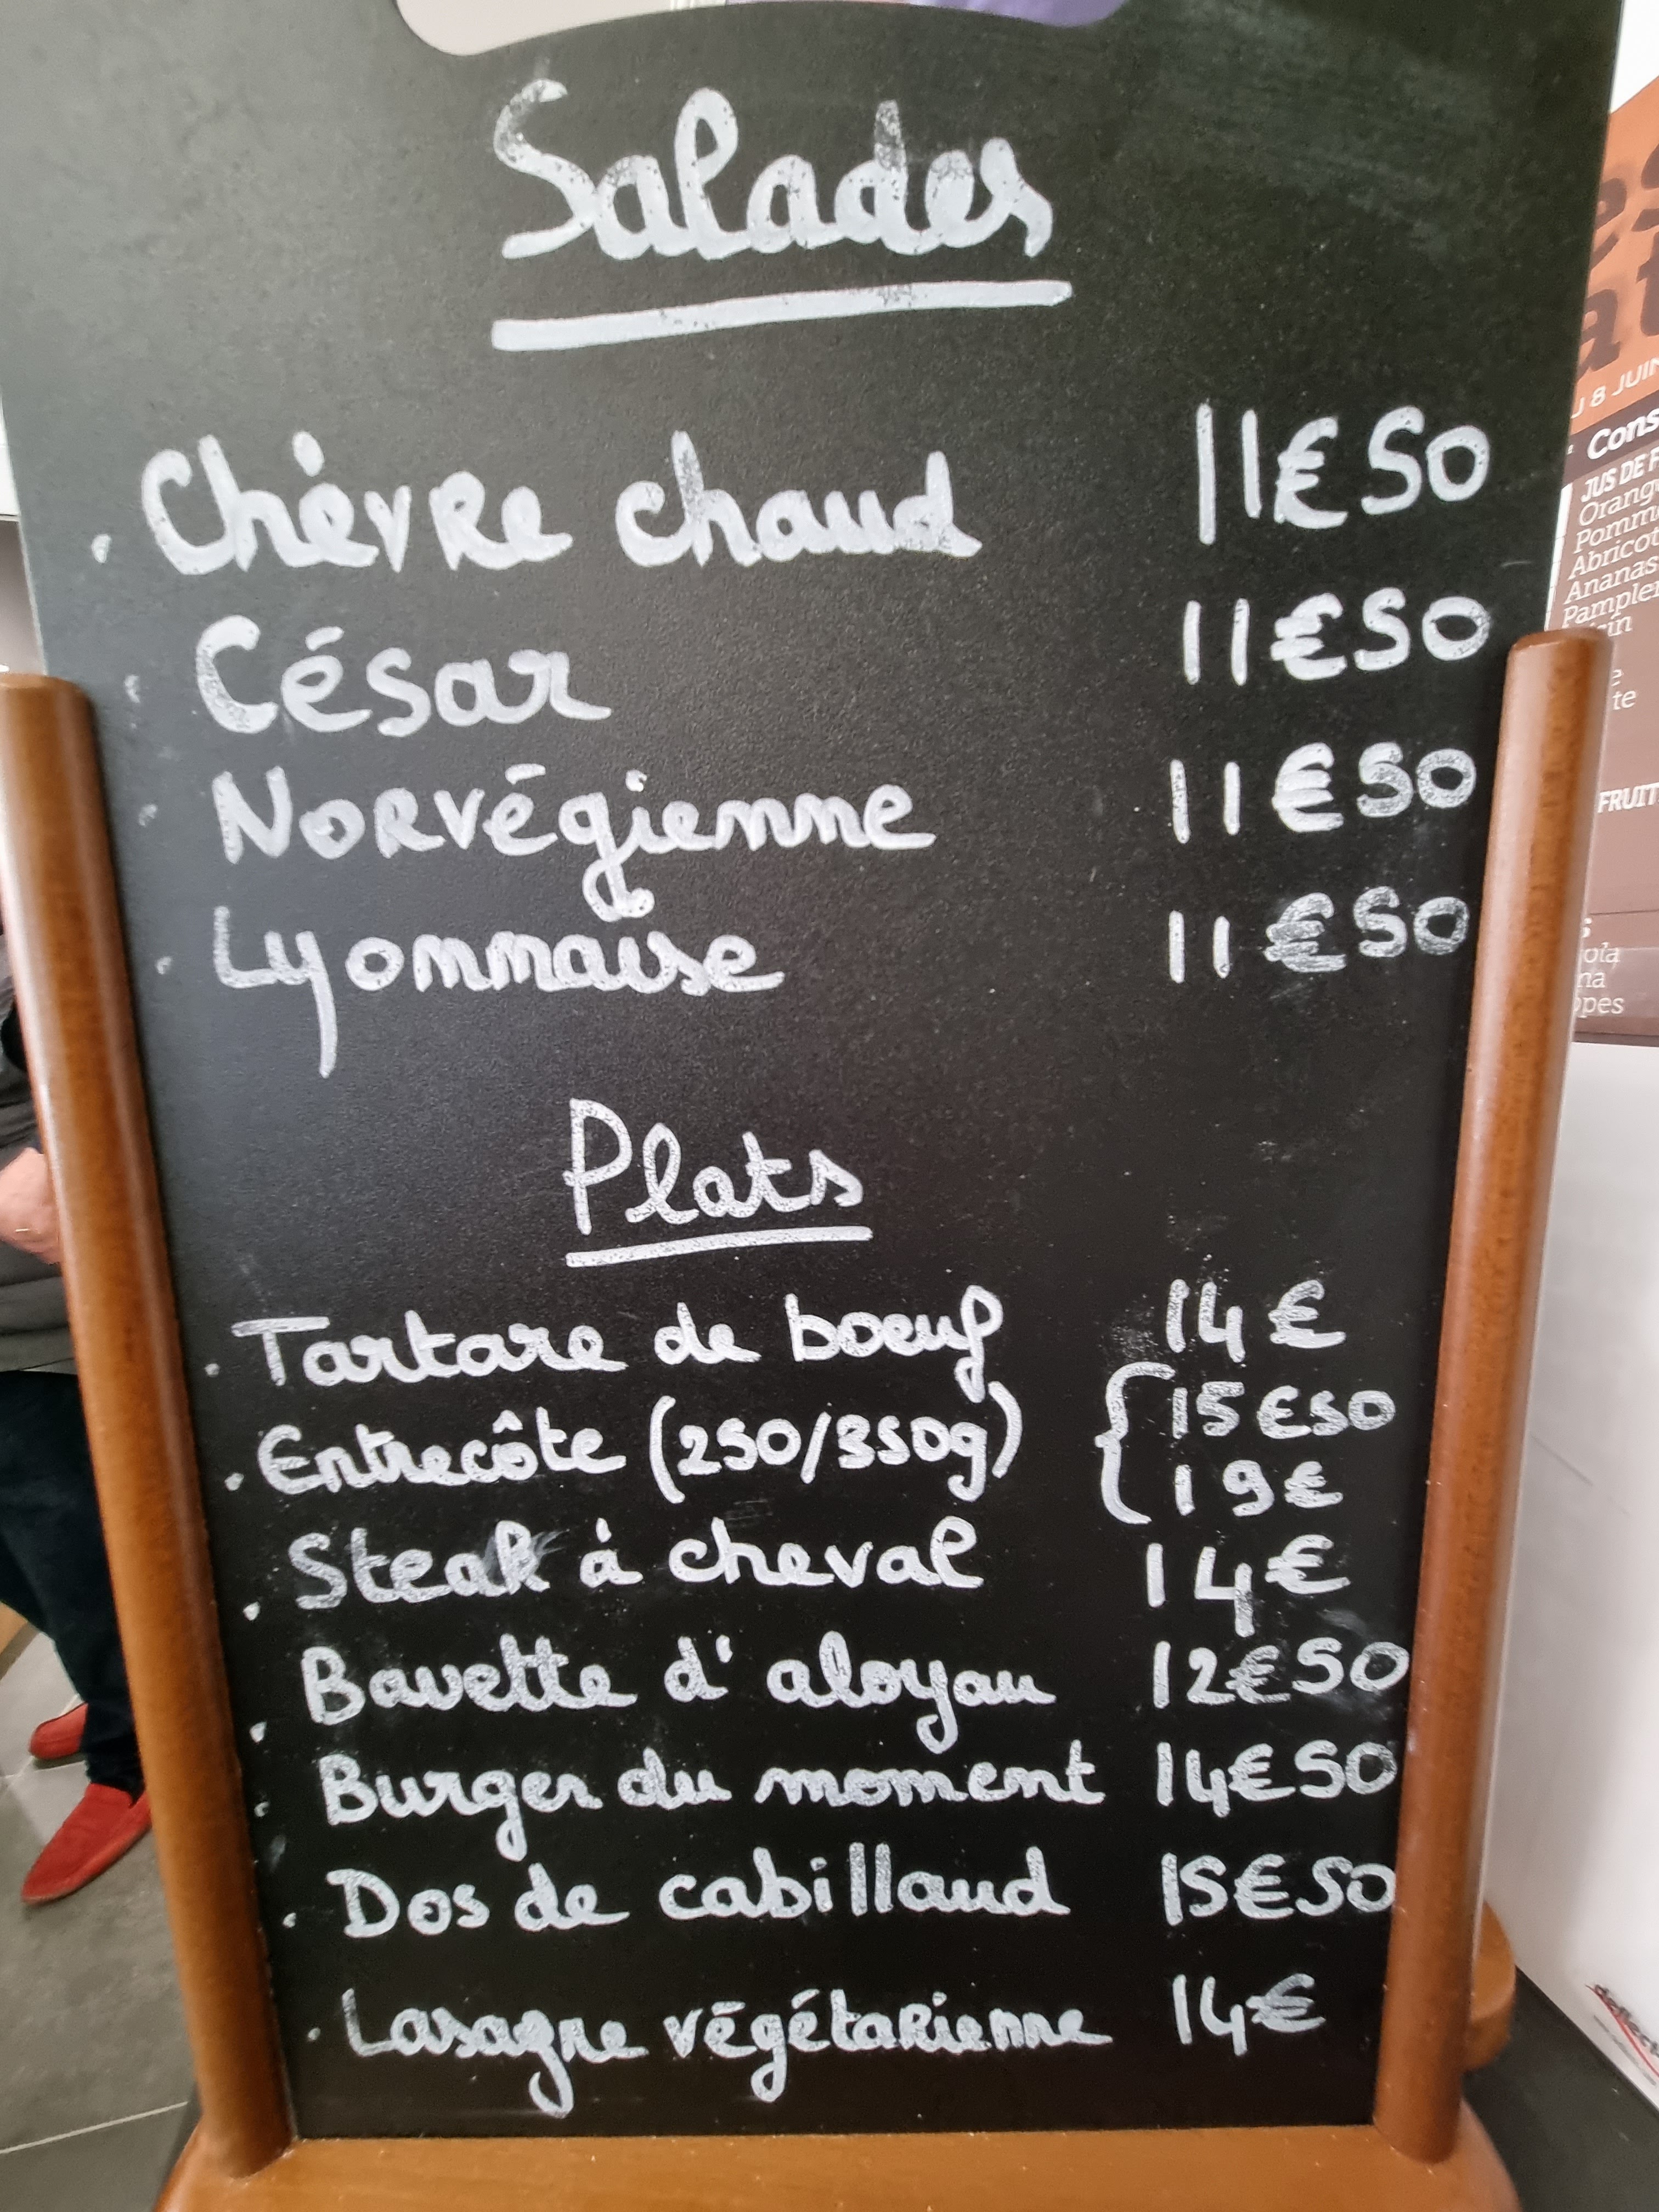 Salades
· Chèvre chaud 11€50
· César 11€50
· Norvégienne 11€50
· Lyonnaise 11€50
Plats
· Tartare de boeuf 14€
· Entrecôte (250/350g) { 15€50
19€
· Steak à cheval 14€
· Bavette d'aloyau 12€50
· Burger du moment 14€50
· Dos de cabillaud 15€50
· Lasagne végétarienne 14€
8 JUIN
Cons
JUS DE F
Orang
Pomm
Abricot
Ananas
Pample
sin
te
FRUIT
ola
na
opes